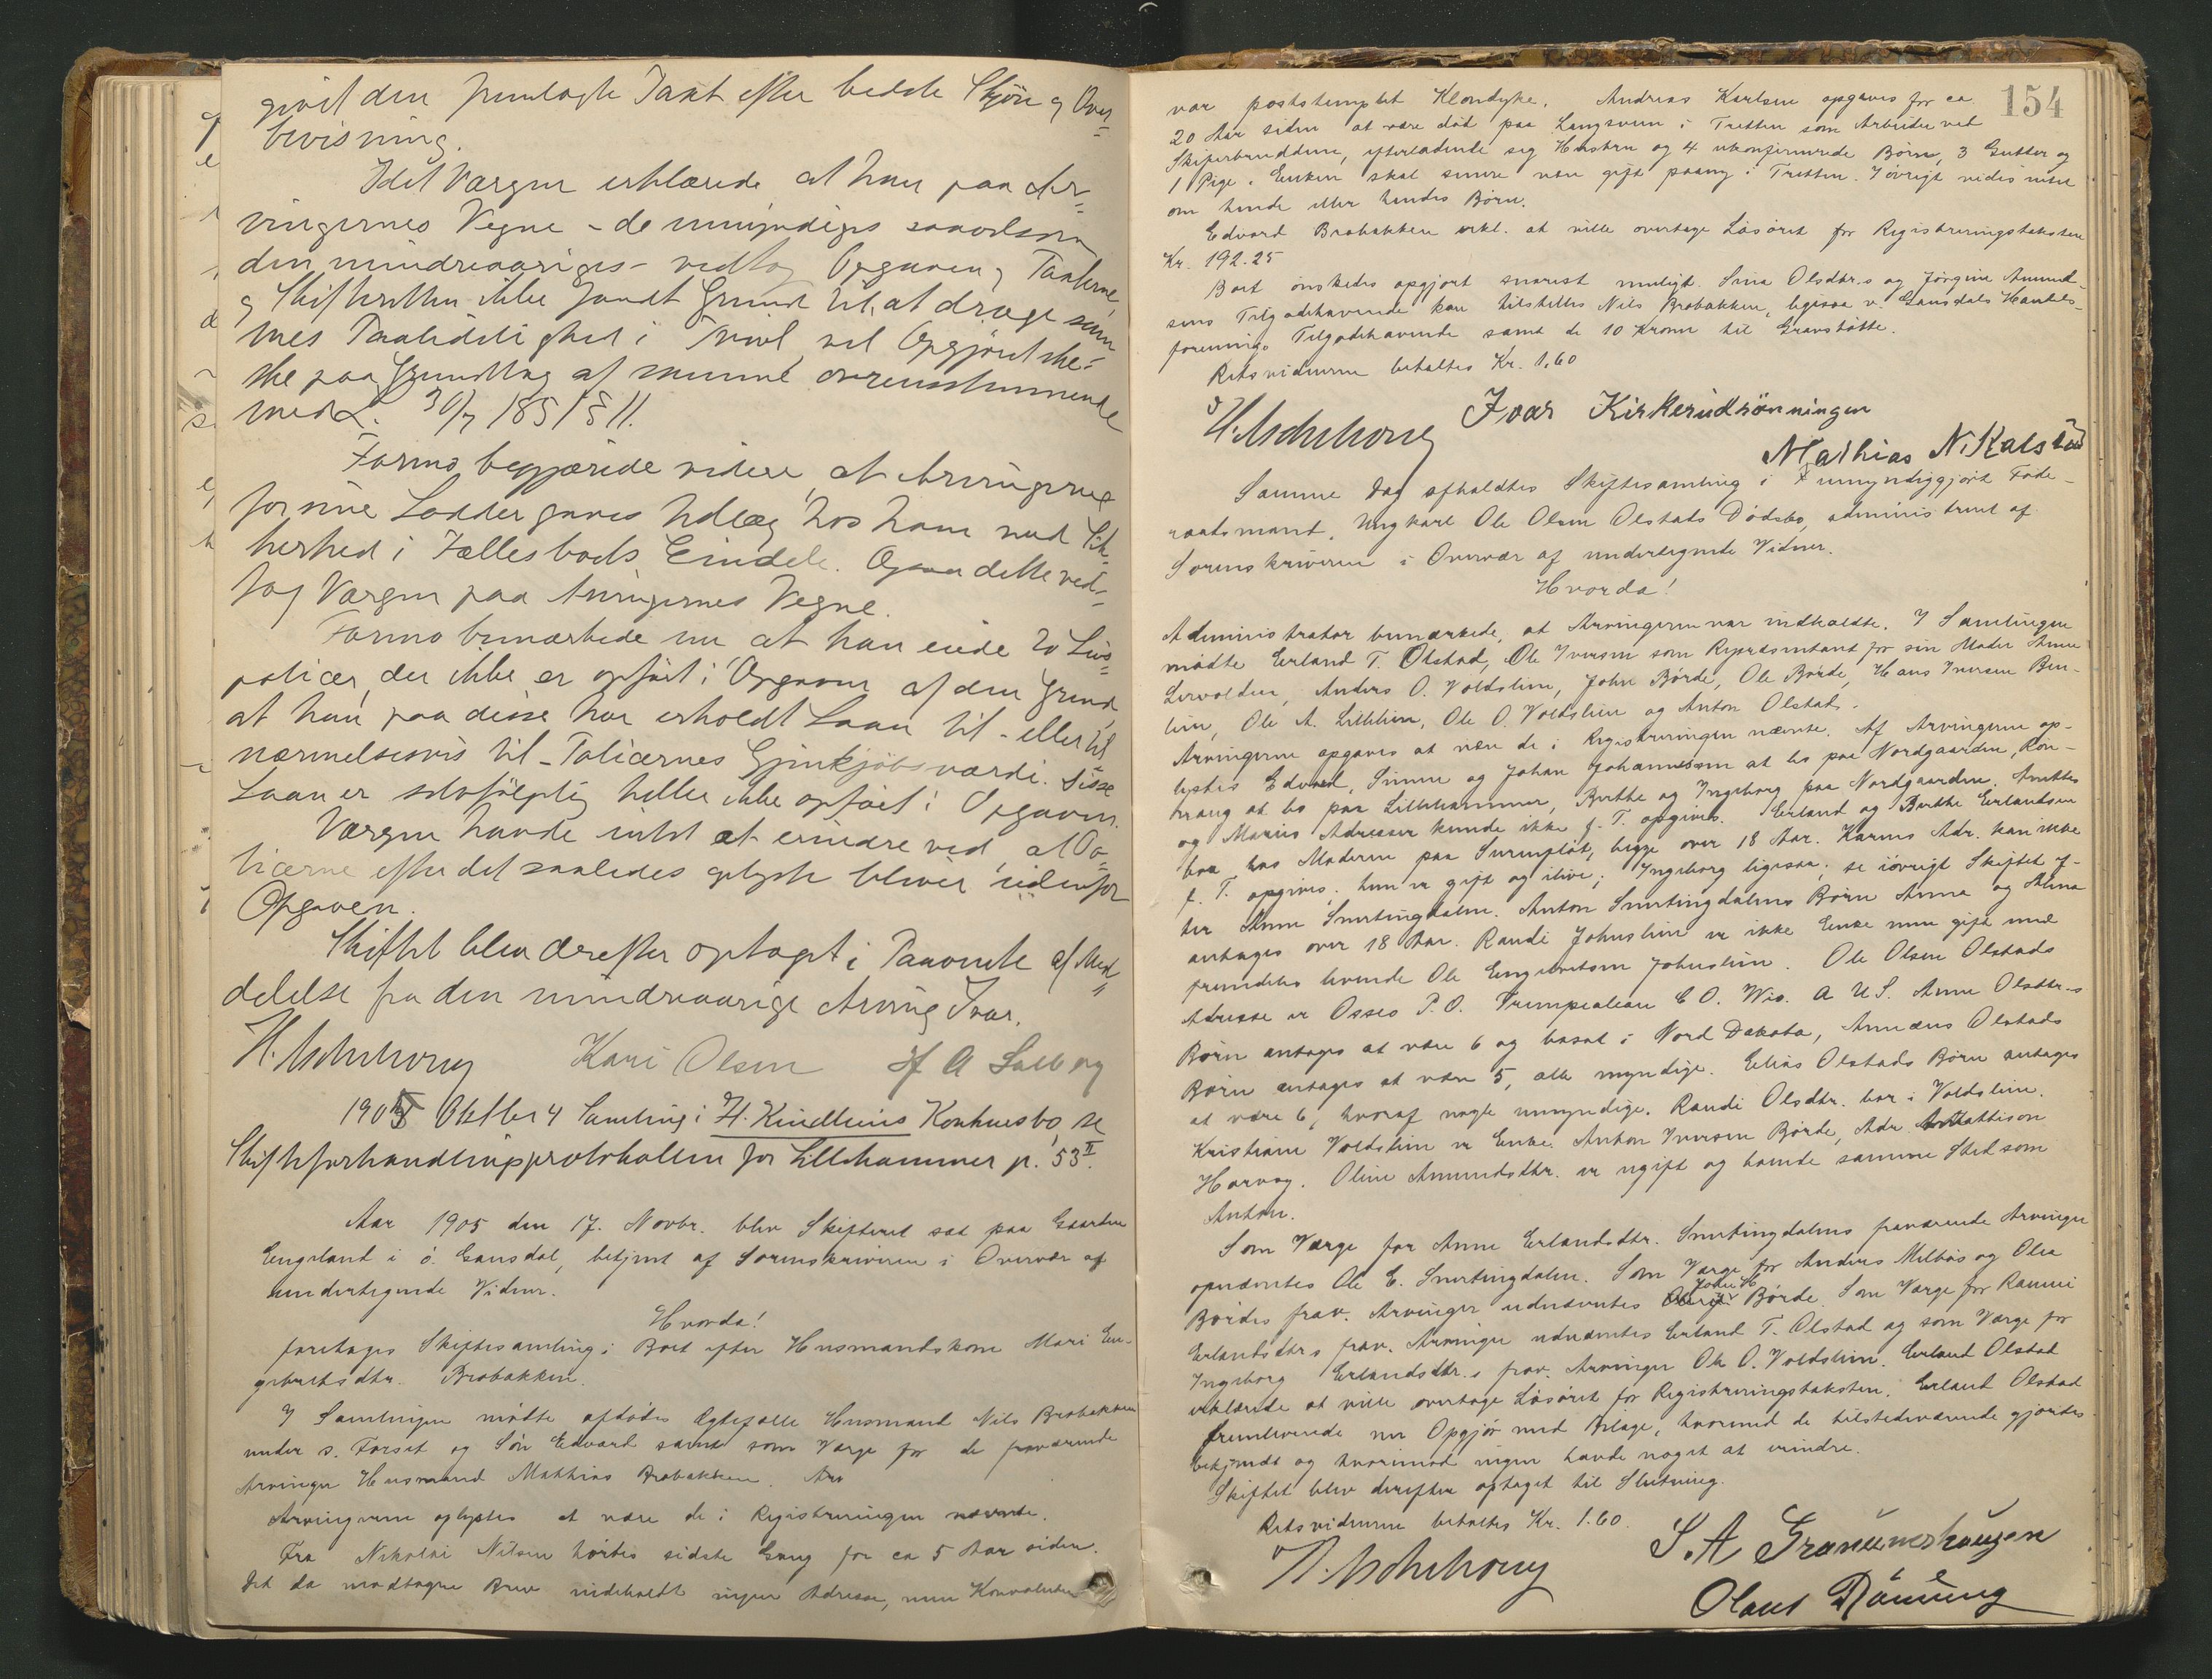 givet den fremlagte Taxt efter bedste Skjøn og Over=
bevisning.
Idet Værgen erklærede at han paa Ar=
vingernes Vegne - de umyndiges saavelsom
den mindreaariges - vedtog Opgaven og Taxterne
og Skifteretten ikke fandt Grund til, at drage sam=
mes Paalidelighed i Tvivl, vil Opgjøret ske=
ske paa Grundlag af samme overensstemmende
med L. 30/7 1851 § 11.
Formo begjærede videre at Arvingerne
for sine Lodder gaves Udlæg hos ham med Sik=
kerhed i Fællesboets Eiendele. Ogsaa dette ved=
tog Værgen paa Arvingernes Vegne.
Formo bemærkede nu at han eiede 2 Livs=
policer, der ikke er opført i Opgaven af den Grund,
at han paa disse har erholdt Laan til - eller til=
nærmelsesvis til - Policernes Gjenkjøbsværdi. Disse
Laan er selvfølgelig heller ikke opført i Opgaven.
Værgen havde intet at erindre ved, at Po=
licerne efter det saaledes oplyste bliver udenfor
Opgaven.
Skiftet blev derefter optaget i Paavente af Med=
delelse fra den mindreaarige Arving Ivar.
H. Aschehoug Kari Olsen H A Solberg
1905 Oktbr 4 Samling i H. Kindleins Konkursbo, se
Skifteforhandlingsprotokollen for Lillehammer p. 53 II.
Aar 1905 den 17. Novbr. blev Skifteret sat paa Gaarden
Engeland i ø. Gausdal, betjent af Sorenskriveren i Overvær af
undertegnede Vidner.
Hvorda!
foretoges Skiftesamling i Boet efter Husmandskone Mari En-
gebretsdtr. Brobakken.
I Samlingen mødte afdødes Ægtefælle Husmand Nils Brobakken
under s. Forset og Søn Edvard samt som Værge for de fraværende
Arvinger Husmand Mathias Brobakken. Arv
Arvingerne oplystes at være de i Registreringen nævnte.
Fra Nikolai Nilsen hørtes sidste Gang for ca 5 Aar siden.
Det da modtagne Brev indeholdt ingen Adresse, men Konvolutten
154
var poststemplet Klondyke. Andreas Karlsen opgaves for ca
20 Aar siden at være død paa Langsveen i Tretten som Arbeider ved
Skiferbruddene, efterladende seg Hustru og 4 ukonfirmerede Børn, 3 Gutter og
1 Pige. Enken skal senere være gift paany i Tretten. Iøvrigt vides intet
om hende eller hendes Børn.
Edvard Brobakken erkl. at ville overtage Løsøret for Registreringstaksten
Kr. 192.25
Boet ønskedes opgjort snarest muligt. Sina Olsdtr.s og Jørgine Amund-
sens Tilgodehavende kan tilstilles Nils Brobakken, ligesaa v. Gausdals Handels-
forenings Tilgodehavende samt de 10 Kroner til Gravstøtte.
Retsvidnerne betaltes Kr. 1.60
H. Aschehoug Ivar Kirkerudrönningen
Mathias N. Kalstad
Samme Dag afholdtes Skiftesamling i umyndiggjort Føde-
raadsmand, Ungkarl Ole Olsen Olstads Dødsbo, administreret af
Sorenskriveren i Overvær af undertegnede Vidner.
Hvorda!
Administrator bemærkede, at Arvingerne var indkaldte. I Samlingen
mødte Erland T. Olstad, Ole Iversen som Repræsentant for sin Moder Anne
Lervolden, Anders O. Voldslien, John Børde, Ole Børde, Hans Iversen Ber-
lien, Ole A. Lillelien, Ole O. Voldslien og Anton Olstad.
Arvingerne opgaves at være de i Registreringen nævnte. Af Arvingerne op-
lystes Edvard, Simen og Johan Johannessen at bo paa Nordgaarden,
at bo paa Lillehammer, Berthe og Ingeborg paa Nordgaarden. Anettes
og Marius Adresser kunde ikke f. T. opgives. Erland og Berthe Erlandsen
bor hos Moderen paa, begge over 18 Aar. Karens Adr. kan ikke
f. T. opgives; hun er gift og ilive; Ingeborg ligesaa; se iøvrigt Skiftet ef-
ter Anne Snertingdalen. Anton Snertingdalens Børn Anna og Alma
antages over 18 Aar. Randi Johnslien er ikke Enke men gift med
fremdeles levende Ole Engebretsen Johnslien. Ole Olsen Olstads
Adresse er Osseo P.O. Trempealeau C O. Wis. A U.S. Anne Olsdtr.s
Børn antages at være 6 og bosat i Nord Dakota, Annæus Olstads
Børn antages at være 5, alle myndige. Elias Olstads Børn antages
at være 6, hvoraf nogle umyndige. Randi Olsdtr. bor i Voldslien.
Kristiane Voldslien er Enke. Anton Iversen Børde, Adr. Mattison
Harvay. Oline Amundsdtr. er ugift og havde samme Sted som
Anton.
Som Værge for Anne Erlandsdtr. Snertingdalens fraværende Arvinger
opnævntes Ole E. Snertingdalen. Som Værge for Anders Melbøs og Olia
Bördes frav. Arvinger udnævntes John H. Børde. Som Værge for Ranni
Erlandsdtrs frav. Arvinger udnævntes Erland T. Olstad og som Værge for
Ingeborg Erlandsdtr.s frav. Arvinger Ole O. Voldslien. Erland Olstad
erklærede at ville overtage Løsøret for Registreringstaksten. Erland Olstad
fremleverede nu Opgjør med Bilage, hvormed de tilstedeværende gjordes
bekjendt og hvorimod ingen havde noget at erindre.
Skiftet blev derefter optaget til Slutning.
Retsvidnerne betaltes Kr. 1.60.
H. Aschehoug S. A Gramunshaugen
Olaus Rönning